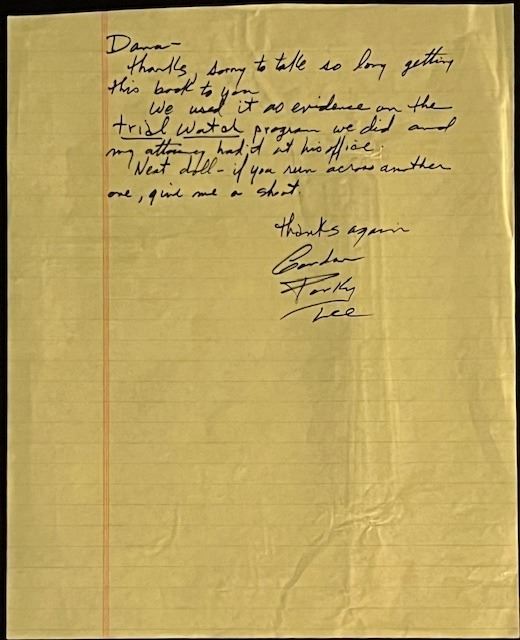 Dana-
thanks, sorry to take so long getting
this back to you
We used it as evidence on the
trial watch program we did and
my attorney had it at his office.
Neat doll - if you run across another
one, give me a shout.
thanks again
Gordon
Porky
Lee